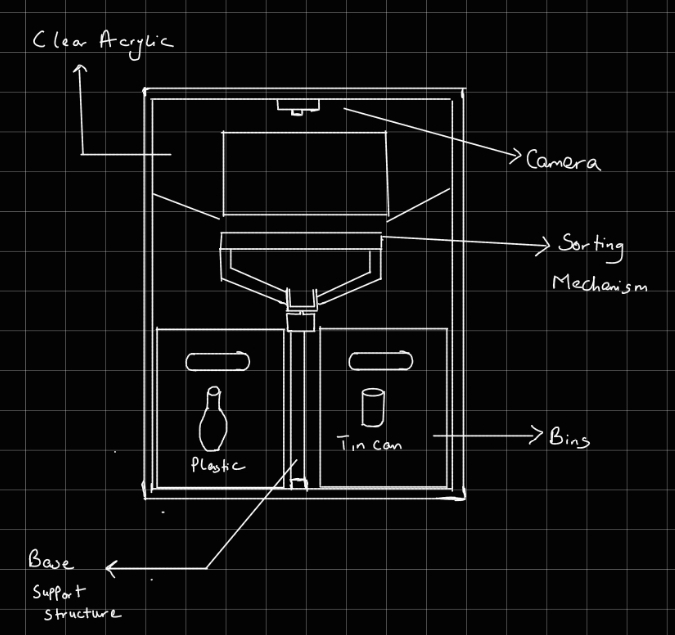 Clear Acrylic
Camera
Sorting
Mechanism
Plastic
Tin can
Bins
Base
Support
Structure